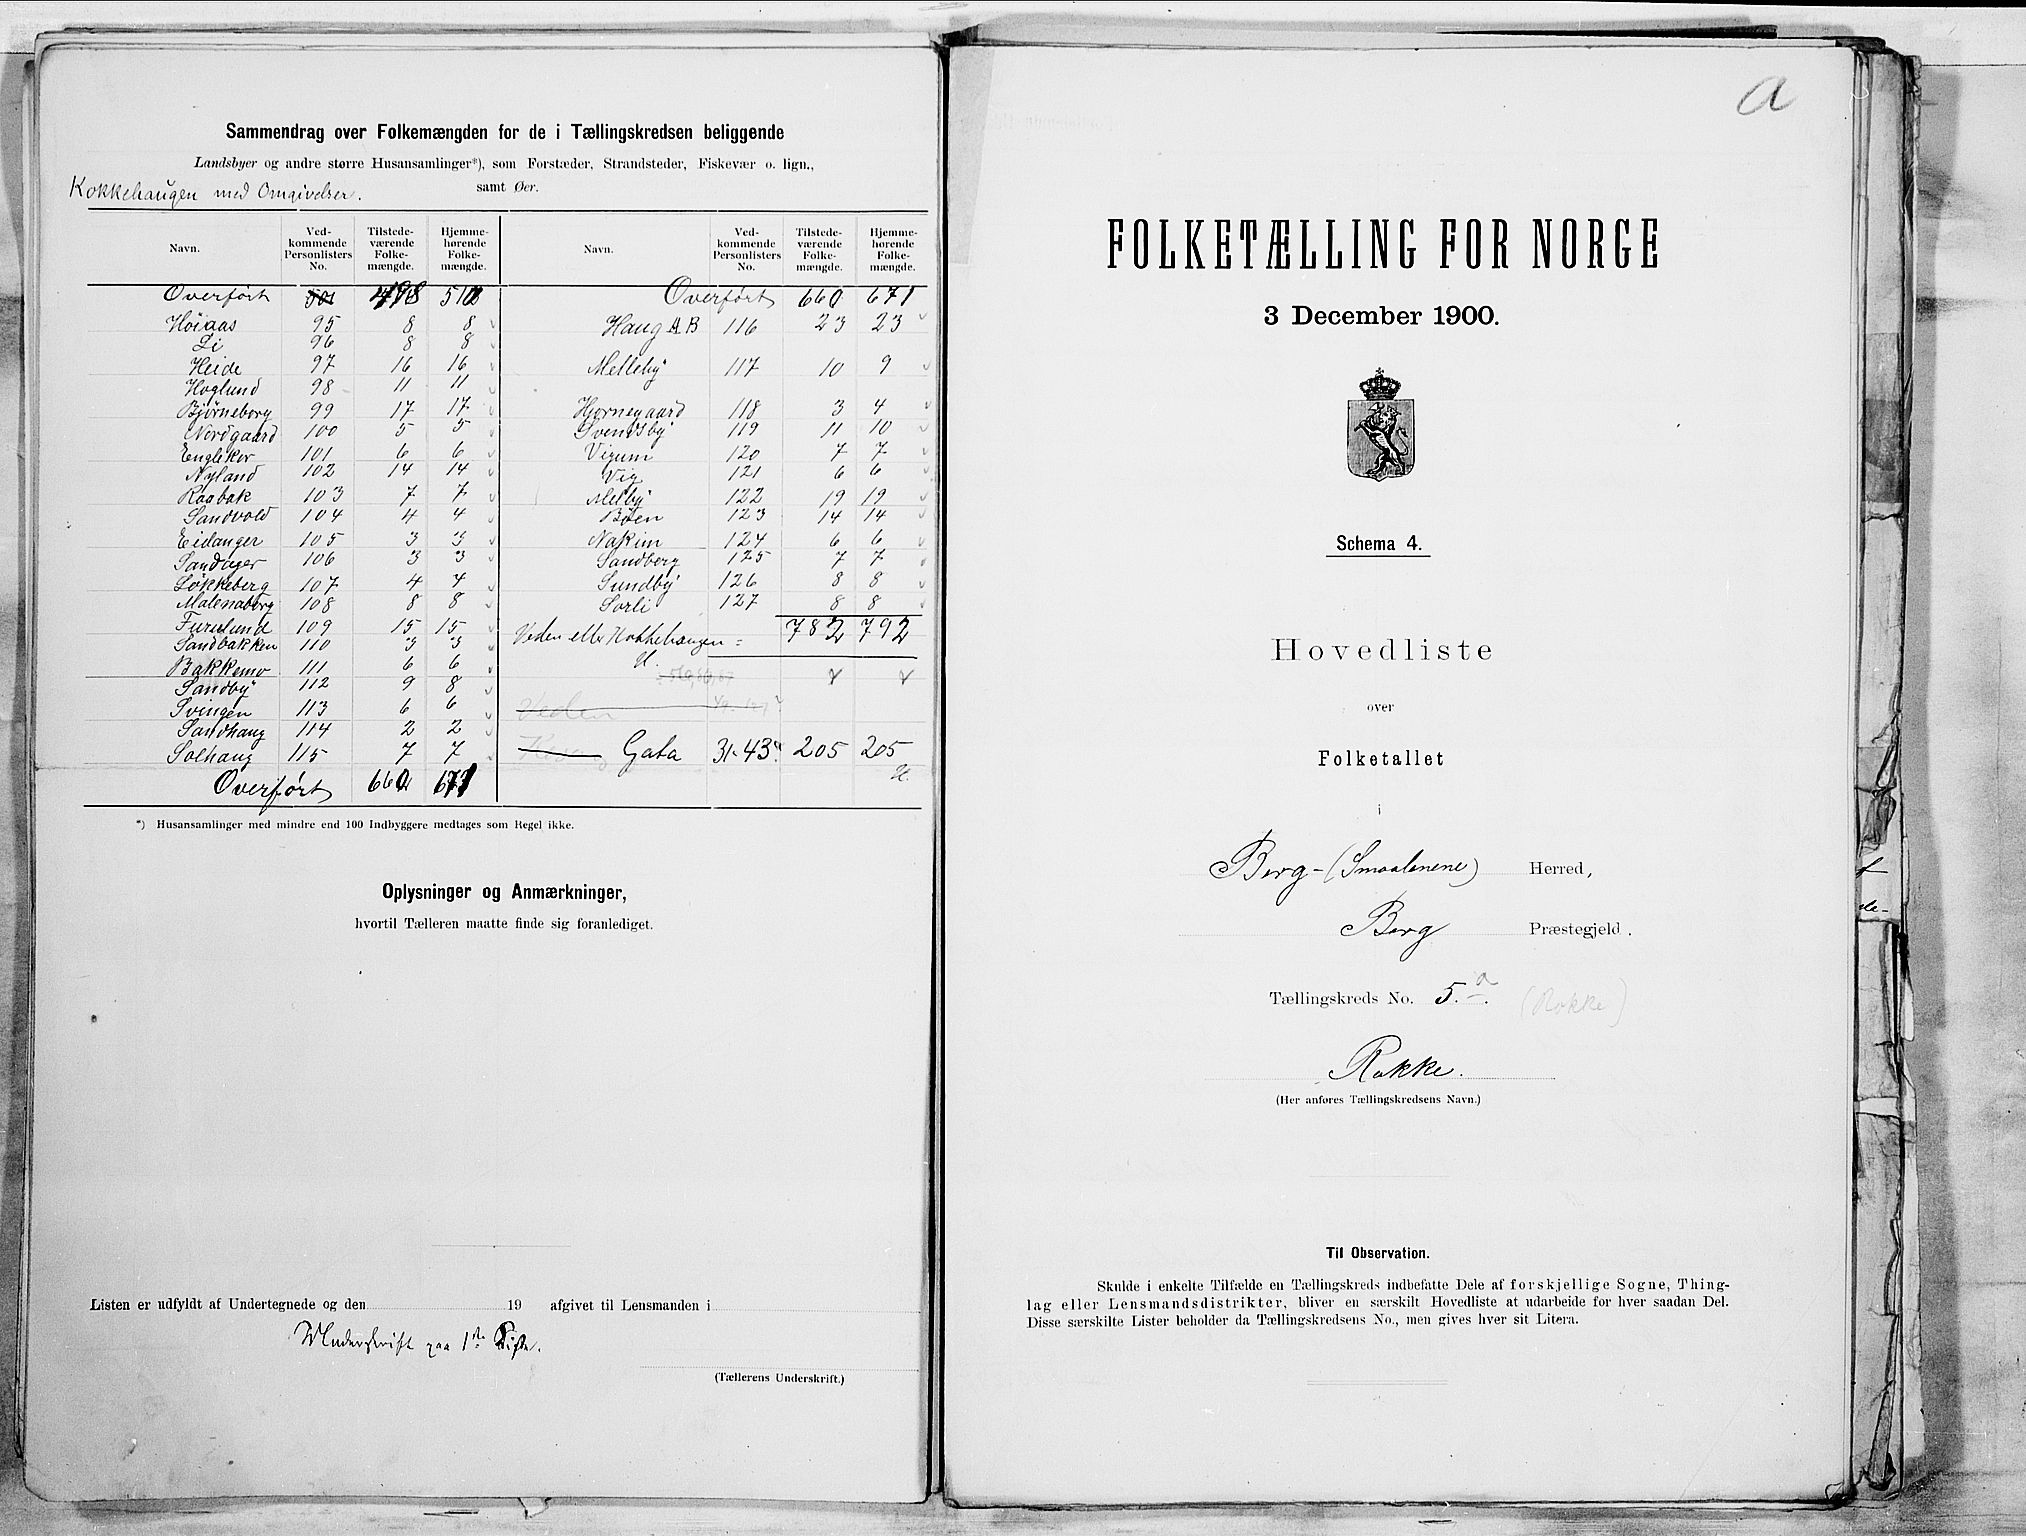 Sammendrag over Folkemængden for de i Tællingskredsen beliggende
Landsbyer og andre større Husansamlinger*), som Forstæder, Strandsteder, Fiskevær o. lign.,
samt Øer.
Kokkehaugen med Omgivelser.
Navn. Ved-kommende Personlisters No. Tilstede-værende Folke-mængde. Hjemme-hørende Folke-mængde.
Overført 498 510
Höiaas 95 8 8
Li 96 8 8
Heide 97 16 16
Hoglund 98 11 11
Bjørneborg 99 17 17
Nordgaard 100 5 5
Englekor 101 6 6
Nyland 102 14 14
Ragbak 103 7 7
Sandvold 104 4 4
Eidanger 105 3 3
Sandager 106 3 3
Løkkeberg 107 4 4
Malenaborg 108 8 8
Furulund 109 15 15
Sandbakken 110 3 3
Bakkemo 111 6 6
Sandby 112 9 8
Svingen 113 6 6
Sandhaug 114 2 2
Solhaug 115 7 7
Overført 660 671
Navn. Ved-kommende Personlisters No. Tilstede-værende Folke-mængde. Hjemme-hørende Folke-mængde.
Overført 660 671
Haug A B 116 23 23
Melleby 117 10 9
Hjørnegaard 118 3 4
Svendsby 119 11 10
Vigum 120 7 7
Vig 121 6 6
Melby 122 19 19
Bøen 123 14 14
Nakim 124 6 6
Sandberg 125 7 7
Sundby 126 8 8
Sorli 127 8 8
Veden eller Kokkehaugen = 782 792
Veden
Gata 31-43 205 205
*) Husansamlinger med mindre end 100 Indbyggere medtages som Regel ikke.
Oplysninger og Anmærkninger,
hvortil Tælleren maatte finde sig foranlediget.
Listen er udfyldt af Undertegnede og den 19 afgivet til Lensmanden i
Underskrift paa 1ste Side.
(Tællerens Underskrift.)
a
FOLKETÆLLING FOR NORGE
3 December 1900.
Schema 4.
Hovedliste
over
Folketallet
i
Berg-(Smaalenene) Herred,
Berg Præstegjeld.
Tællingskreds No. 5.a. (Rokke)
Rokke.
(Her anføres Tællingskredsens Navn.)
Til Observation.
Skulde i enkelte Tilfælde en Tællingskreds indbefatte Dele af forskjellige Sogne, Thing-
lag eller Lensmandsdistrikter, bliver en særskilt Hovedliste at udarbeide for hver saadan Del.
Disse særskilte Lister beholder da Tællingskredsens No., men gives hver sit Litera.